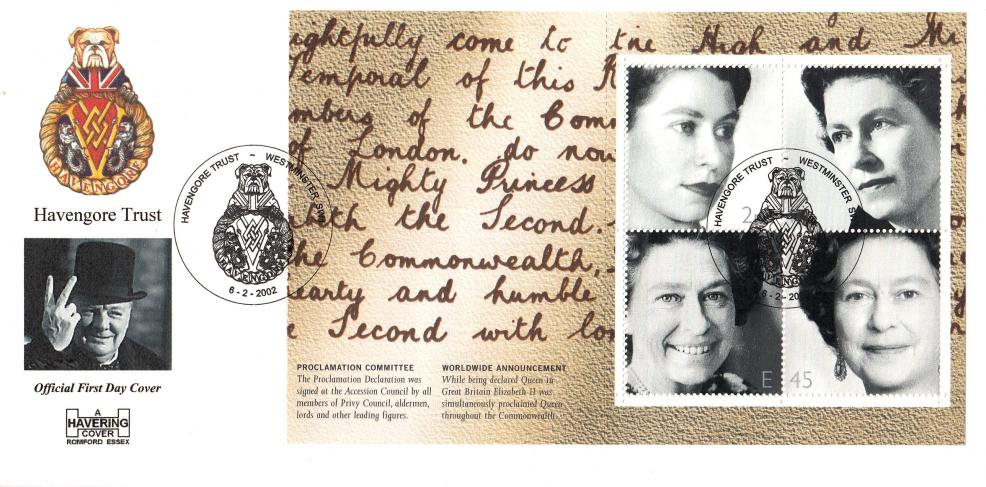 HAVENGORE
Havengore Trust
Official First Day Cover
A
HAVERING
COVER
ROMFORD ESSEX
HAVENGORE TRUST ~ WESTMINSTER SW1
HAVENGORE
6-2-2002
ightfully come to the High and Mi
Temporal of this
mbers of the Comm
of London, do now
Mighty Princess
beth the Second.
the Commonwealth,
earty and humble
e Second with lon
PROCLAMATION COMMITTEE
The Proclamation Declaration was
signed at the Accession Council by all
members of Privy Council, aldermen,
lords and other leading figures.
WORLDWIDE ANNOUNCEMENT
While being declared Queen in
Great Britain Elizabeth II was
simultaneously proclaimed Queen
throughout the Commonwealth.
HAVENGORE TRUST ~ WESTMINSTER SW1
HAVENGORE
6-2-20
2
E
45